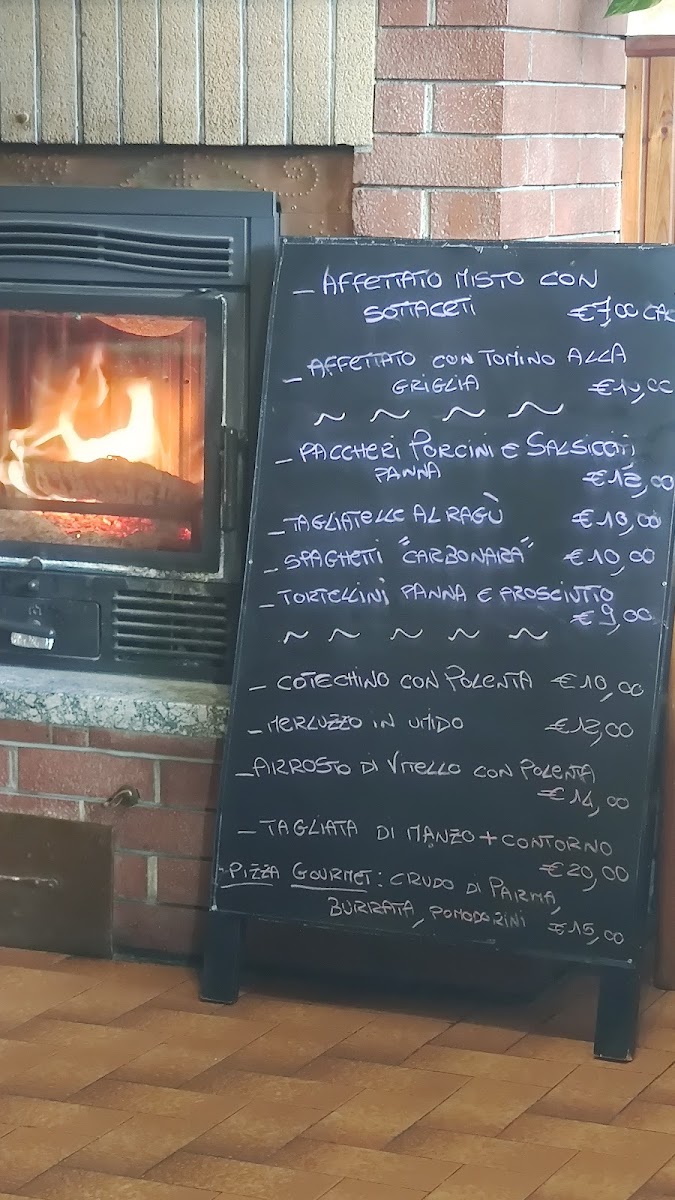 - AFFETTATO MISTO CON
SOTTACETI €7,00 CAD
- AFFETTATO CON TOMINO ALLA
GRIGLIA €10,00
~ ~ ~ ~
- PACCHERI PORCINI E SALSICCIA
PANNA €12,00
- TAGLIATELLE AL RAGÙ €10,00
- SPAGHETTI "CARBONARA" €10,00
- TORTELLINI PANNA E PROSCIUTTO
€9,00
~ ~ ~ ~ ~
- COTECHINO CON POLENTA €10,00
- MERLUZZO IN UMIDO €12,00
- ARROSTO DI VITELLO CON POLENTA
€14,00
- TAGLIATA DI MANZO + CONTORNO
€20,00
- PIZZA GOURMET: CRUDO DI PARMA,
BURRATA, POMODORINI €15,00